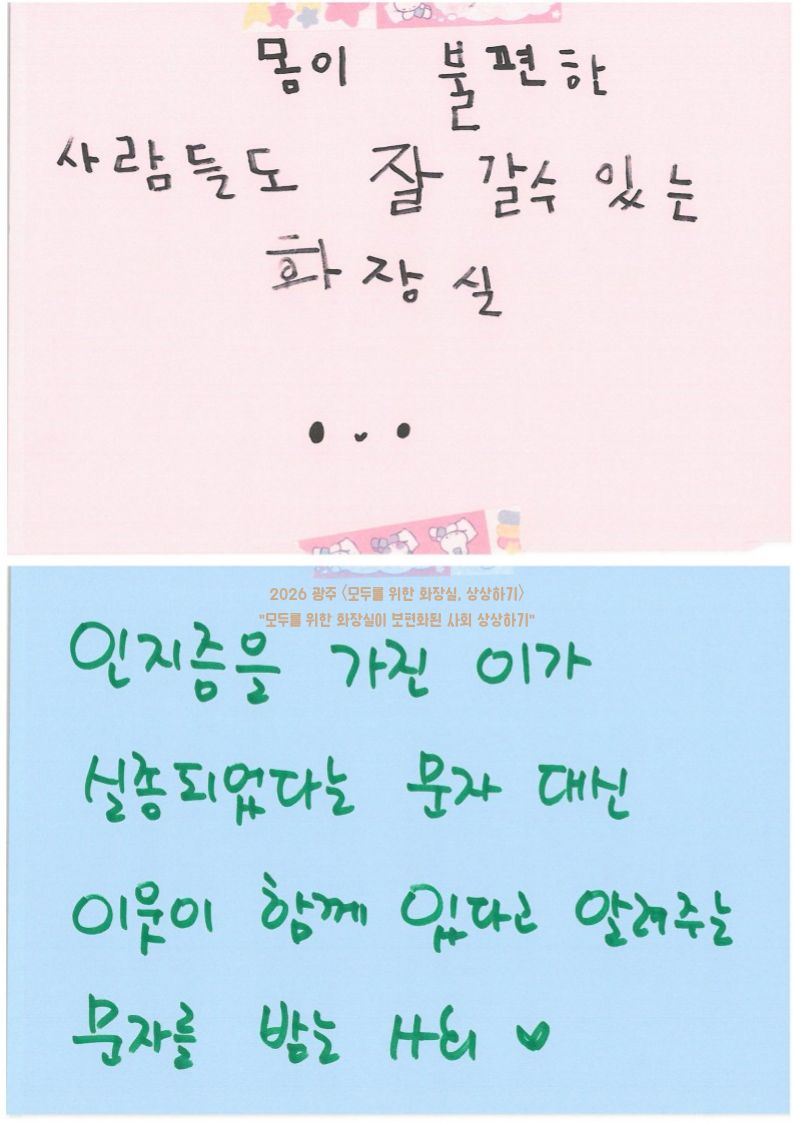 몸이 불편한
사람들도 잘 갈수 있는
화장실
2026 광주 <모두를 위한 화장실, 상상하기>
"모두를 위한 화장실이 보편화된 사회 상상하기"
인지증을 가진 이가
실종되었다는 문자 대신
이웃이 함께 있다고 알려주는
문자를 받는 사회 ♥